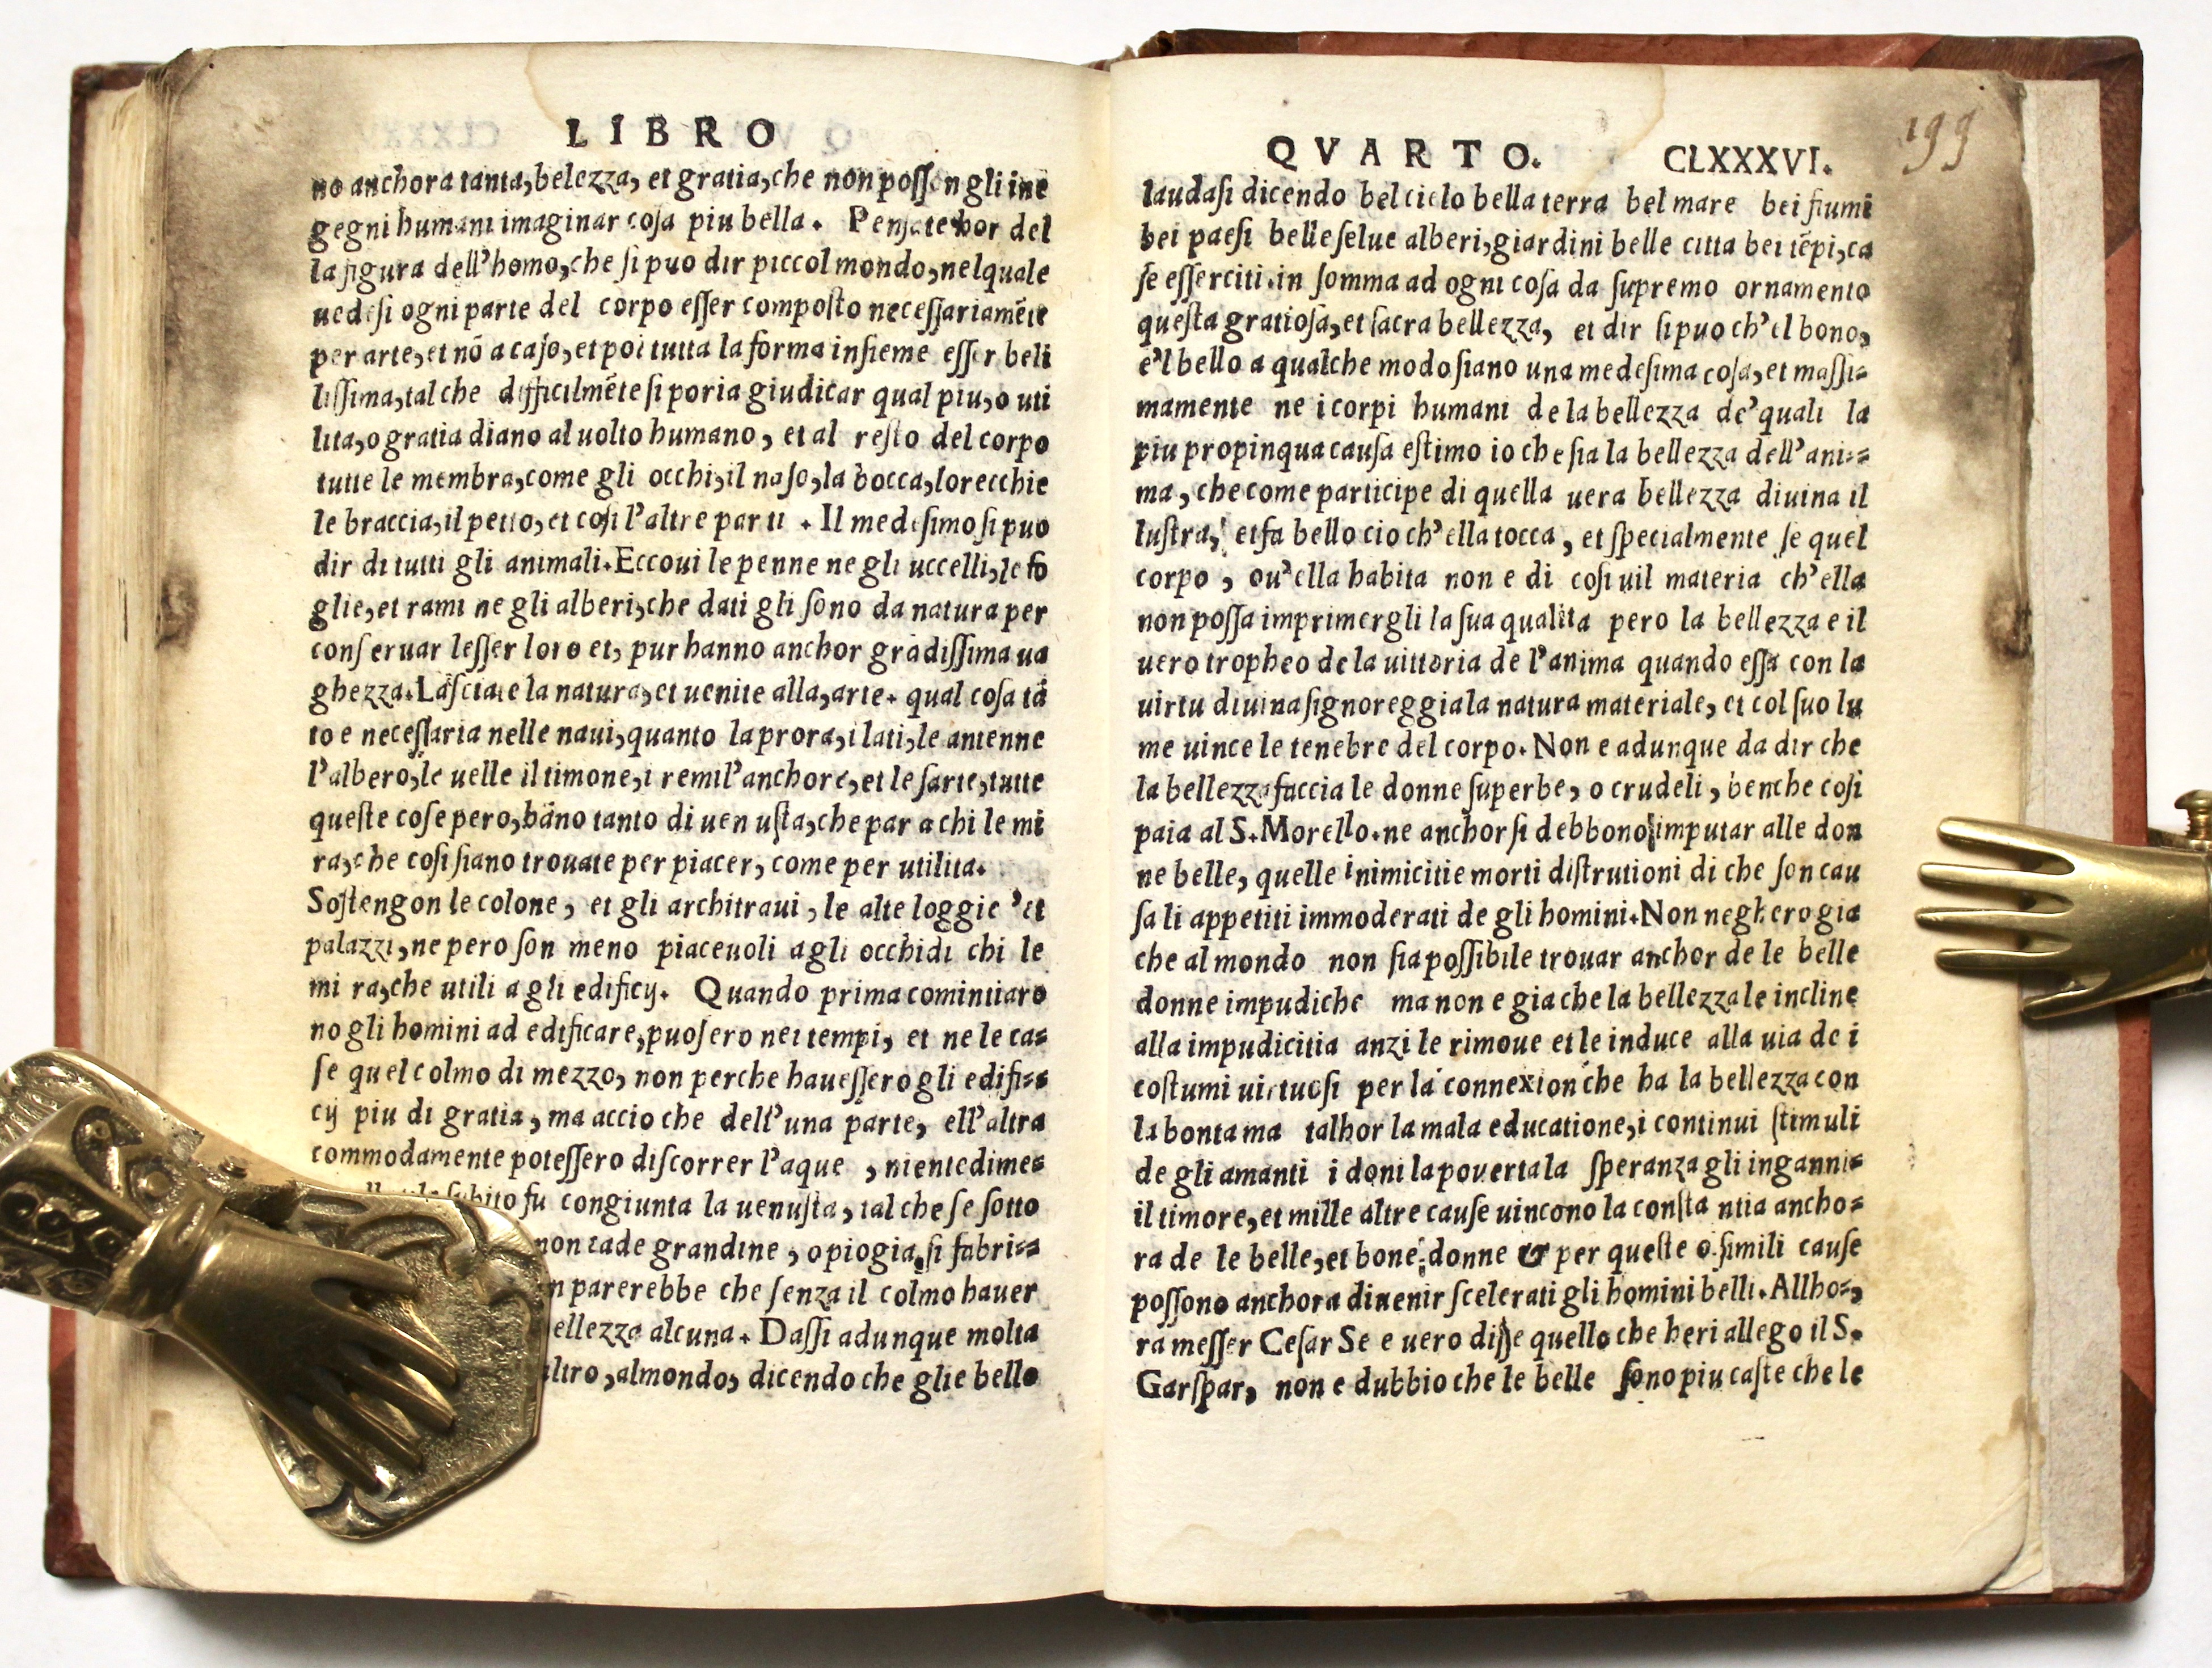 LIBRO
no anchora tanta, belezza, et gratia, che non posson gli ine
gegni humani imaginar cosa piu bella. Pensate hor del
la figura dell'homo, che si puo dir piccol mondo, nelquale
uedesi ogni parte del corpo esser composto necessariamēte
per arte, et nō a caso, et poi tutta la forma insieme esser beli
lissima, tal che difficilmēte si poria giudicar qual piu, o uti
lita, o gratia diano al uolto humano, et al resto del corpo
tutte le membra, come gli occhi, il naso, la bocca, lorecchie
le braccia, il petto, et cosi l'altre parti. Il medesimo si puo
dir di tutti gli animali. Eccoui le penne ne gli uccelli, le fo
glie, et rami ne gli alberi, che dati gli sono da natura per
conseruar lesser loro et, pur hanno anchor grādissima ua
ghezza. Lasciate la natura, et uenite alla, arte. qual cosa tā
to e necessaria nelle naui, quanto la prora, i lati, le antenne
l'albero, le uelle il timone, i remi l'anchore, et le sarte, tutte
queste cose pero, hāno tanto di uenusta, che par a chi le mi
ra, che cosi siano trouate per piacer, come per utilita.
Sostengon le colone, et gli architraui, le alte loggie 'et
palazzi, ne pero son meno piaceuoli agli occhi di chi le
mi ra, che utili a gli edificij. Quando prima comintiaro
no gli homini ad edificare, puosero nei tempi, et ne le ca=
se quel colmo di mezzo, non perche hauessero gli edifi=
cij piu di gratia, ma accio che dell'una parte, ell'altra
commodamente potessero discorrer l'aque, nientedime=
subito fu congiunta la uenusta, tal che se sotto
non cade grandine, o piogia, si fabri=
parerebbe che senza il colmo hauer
ellezza alcuna. Dassi adunque molta
altro, al mondo, dicendo che glie bello
QVARTO. CLXXXVI.
199
laudasi dicendo bel cielo bella terra bel mare bei fiumi
bei paesi belle selue alberi, giardini belle citta bei tēpi, ca
se esserciti. in somma ad ogni cosa da supremo ornamento
questa gratiosa, et sacra bellezza, et dir si puo ch'el bono,
e'l bello a qualche modo siano una medesima cosa, et massi=
mamente ne i corpi humani de la bellezza de' quali la
piu propinqua causa estimo io che sia la bellezza dell'ani=
ma, che come participe di quella uera bellezza diuina il
lustra, et fa bello cio ch'ella tocca, et specialmente se quel
corpo, ou'ella habita non e di cosi uil materia ch'ella
non possa imprimergli la sua qualita pero la bellezza e il
uero tropheo de la uittoria de l'anima quando essa con la
uirtu diuina signoreggia la natura materiale, et col suo lu
me uince le tenebre del corpo. Non e adunque da dir che
la bellezza faccia le donne superbe, o crudeli, benche cosi
paia al S. Morello. ne anchor si debbono imputar alle don
ne belle, quelle inimicitie morti distrutioni di che son cau
sa li appetiti immoderati de gli homini. Non neghero gia
che al mondo non sia possibile trouar anchor de le belle
donne impudiche ma non e gia che la bellezza le incline
alla impudicitia anzi le rimoue et le induce alla uia de i
costumi uirtuosi per la connexion che ha la bellezza con
la bonta ma talhor la mala educatione, i continui stimuli
de gli amanti i doni la pouerta la speranza gli inganni=
il timore, et mille altre cause uincono la consta ntia ancho=
ra de le belle, et bone, donne & per queste o simili cause
possono anchora diuenir scelerati gli homini belli. Allho=,
ra messer Cesar Se e uero disse quello che heri allego il S.
Garspar, non e dubbio che le belle sono piu caste che le